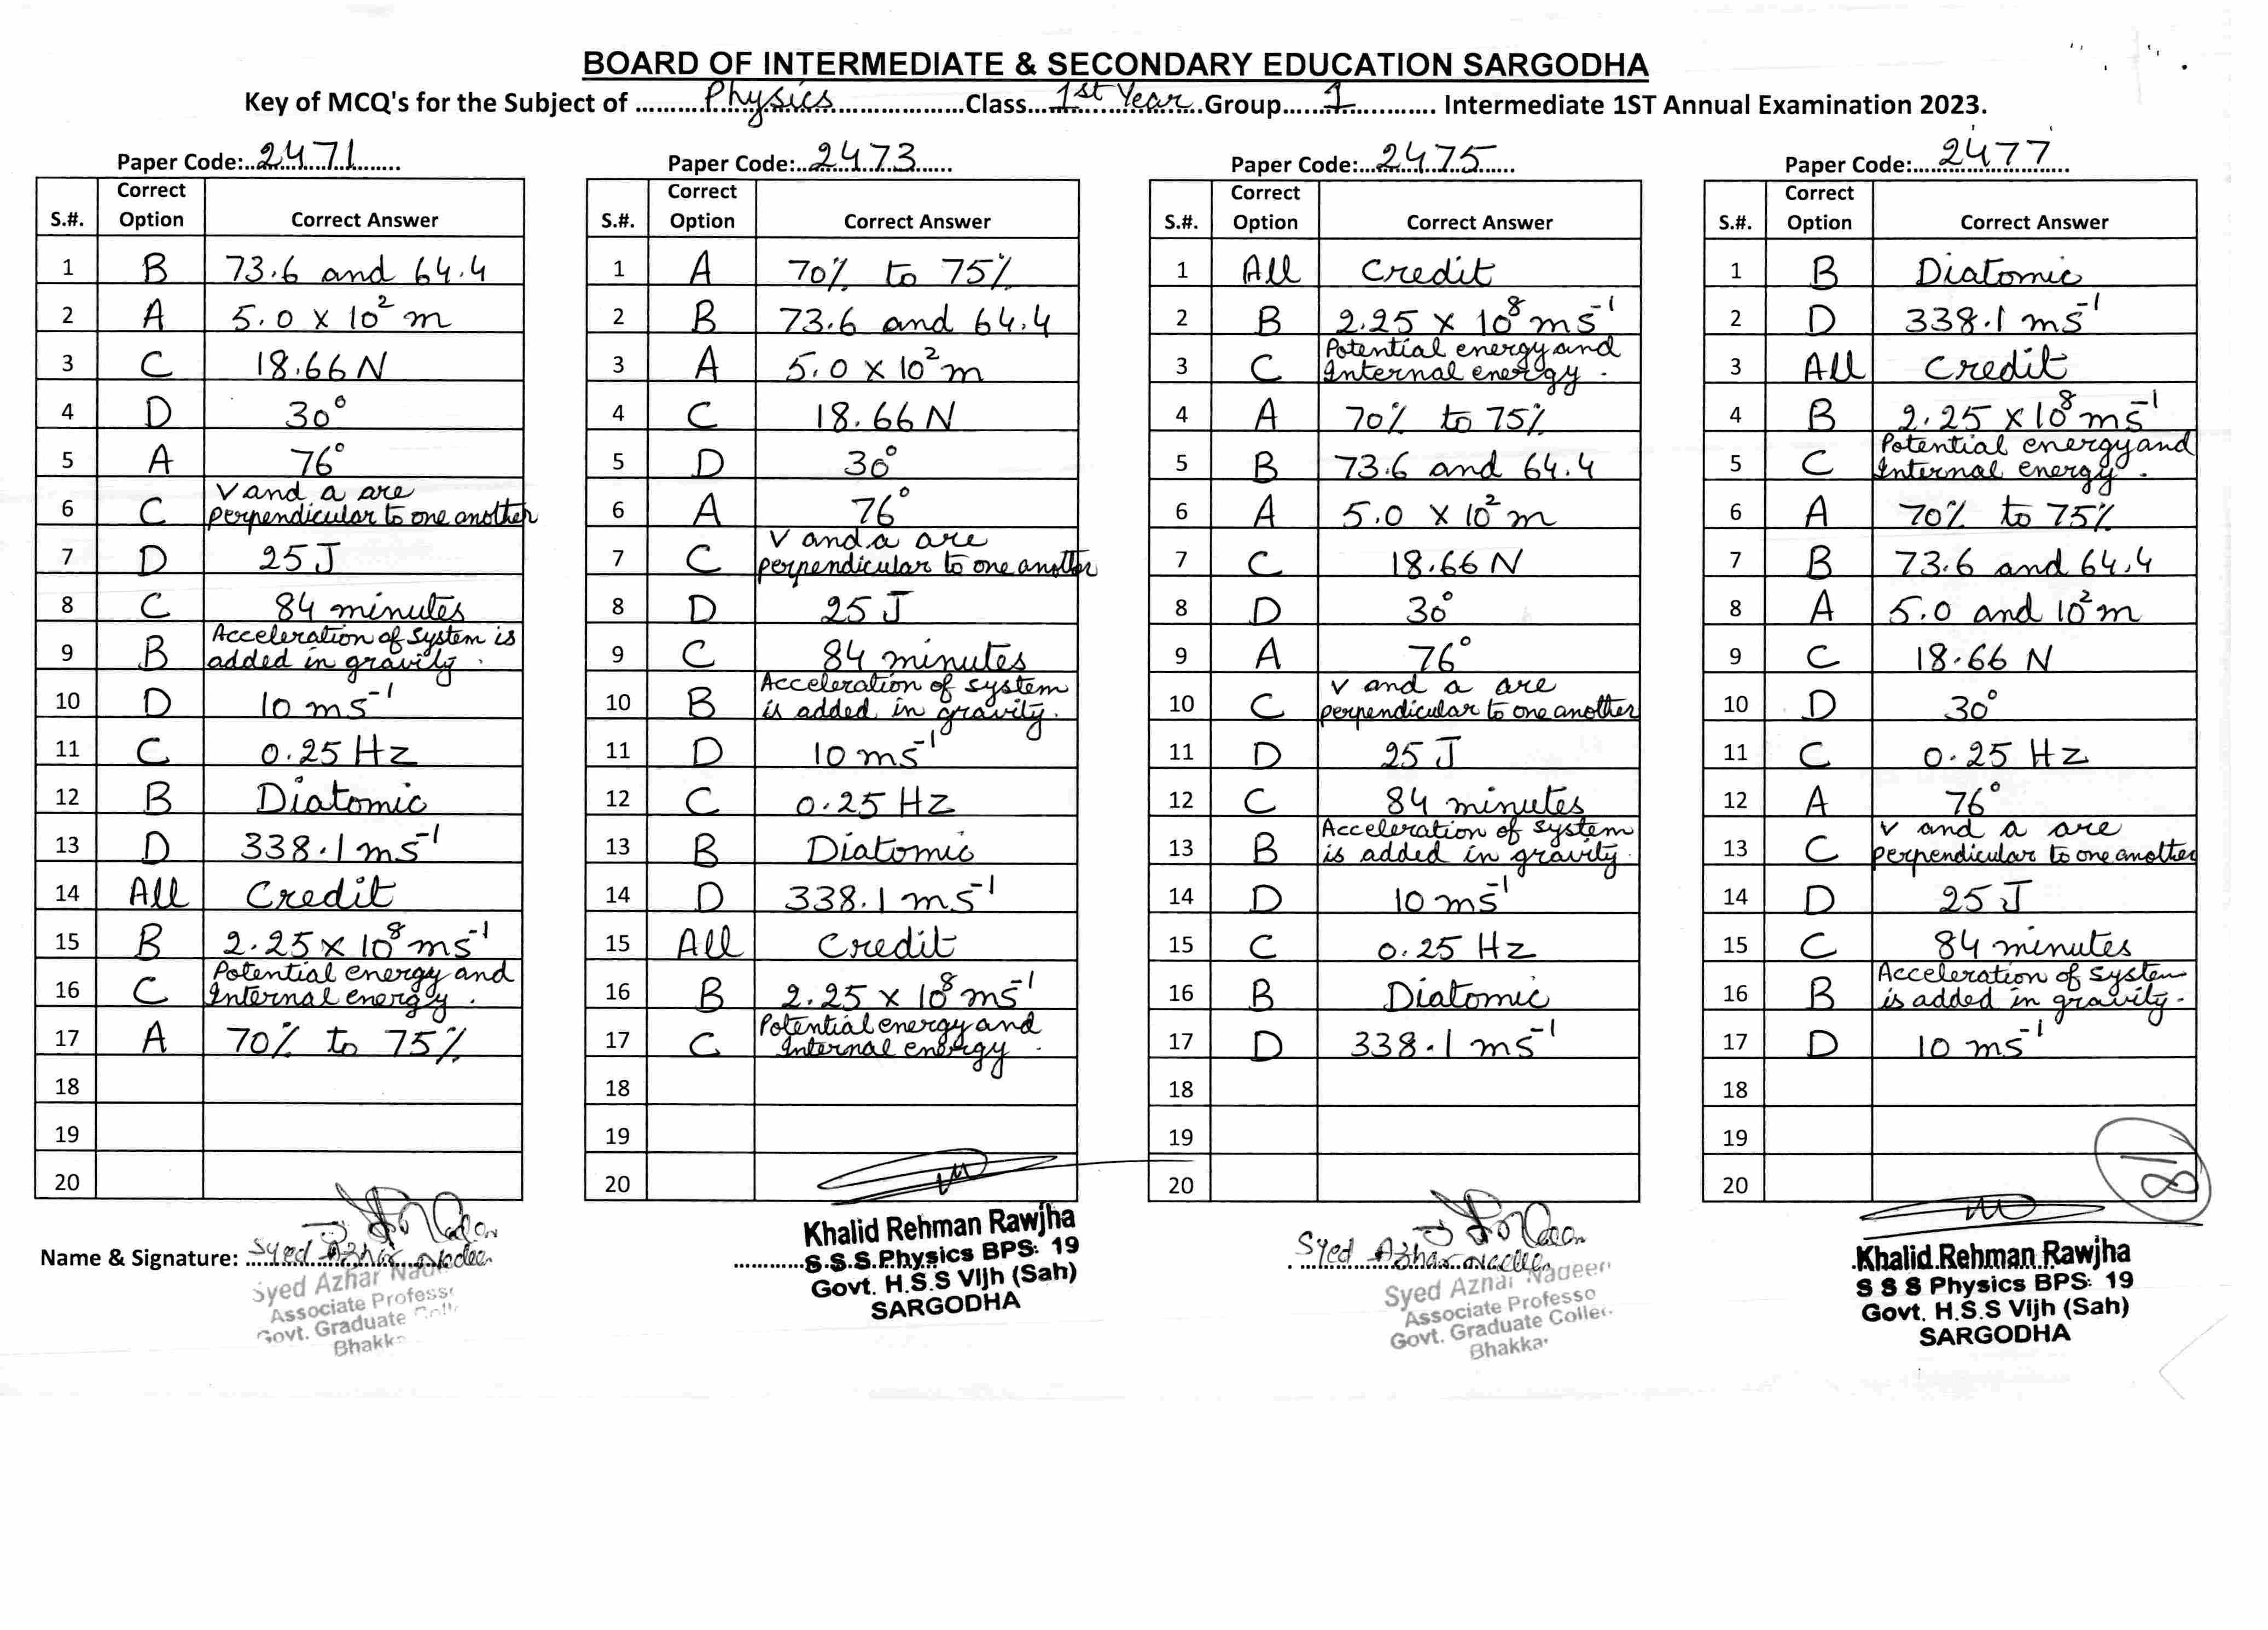 BOARD OF INTERMEDIATE & SECONDARY EDUCATION SARGODHA
Key of MCQ's for the Subject of Physics Class 1st Year Group 1 Intermediate 1ST Annual Examination 2023.
Paper Code: 2471
S.#. Correct Option Correct Answer
1 B 73.6 and 64.4
2 A 5.0 x 10² m
3 C 18.66 N
4 D 30°
5 A 76°
6 C V and a are
perpendicular to one another
7 D 25 J
8 C 84 minutes
9 B Acceleration of system is
added in gravity.
10 D 10 ms⁻¹
11 C 0.25 Hz
12 B Diatomic
13 D 338.1 ms⁻¹
14 All Credit
15 B 2.25 x 10⁸ ms⁻¹
16 C Potential energy and
Internal energy.
17 A 70% to 75%
18
19
20
Paper Code: 2473
S.#. Correct Option Correct Answer
1 A 70% to 75%
2 B 73.6 and 64.4
3 A 5.0 x 10² m
4 C 18.66 N
5 D 30°
6 A 76°
7 C V and a are
perpendicular to one another
8 D 25 J
9 C 84 minutes
10 B Acceleration of system
is added in gravity.
11 D 10 ms⁻¹
12 C 0.25 Hz
13 B Diatomic
14 D 338.1 ms⁻¹
15 All Credit
16 B 2.25 x 10⁸ ms⁻¹
17 C Potential energy and
Internal energy
18
19
20
Paper Code: 2475
S.#. Correct Option Correct Answer
1 All Credit
2 B 2.25 x 10⁸ ms⁻¹
3 C Potential energy and
Internal energy.
4 A 70% to 75%
5 B 73.6 and 64.4
6 A 5.0 x 10² m
7 C 18.66 N
8 D 30°
9 A 76°
10 C v and a are
perpendicular to one another
11 D 25 J
12 C 84 minutes
13 B Acceleration of system
is added in gravity.
14 D 10 ms⁻¹
15 C 0.25 Hz
16 B Diatomic
17 D 338.1 ms⁻¹
18
19
20
Paper Code: 2477
S.#. Correct Option Correct Answer
1 B Diatomic
2 D 338.1 ms⁻¹
3 All Credit
4 B 2.25 x 10⁸ ms⁻¹
5 C Potential energy and
Internal energy.
6 A 70% to 75%
7 B 73.6 and 64.4
8 A 5.0 and 10² m
9 C 18.66 N
10 D 30°
11 C 0.25 Hz
12 A 76°
13 C v and a are
perpendicular to one another
14 D 25 J
15 C 84 minutes
16 B Acceleration of system
is added in gravity.
17 D 10 ms⁻¹
18
19
20
Name & Signature: Syed Azhar Nadeem
Syed Azhar
Associate Profess
Govt. Graduate
Bhakk
Khalid Rehman Rawjha
S.S.S.Physics BPS: 19
Govt. H.S.S Vijh (Sah)
SARGODHA
Syed Azhar
Syed Azhar Nadeem
Associate Professo
Govt. Graduate Colleg
Bhakka
Khalid Rehman Rawjha
S S S Physics BPS: 19
Govt. H.S.S Vijh (Sah)
SARGODHA